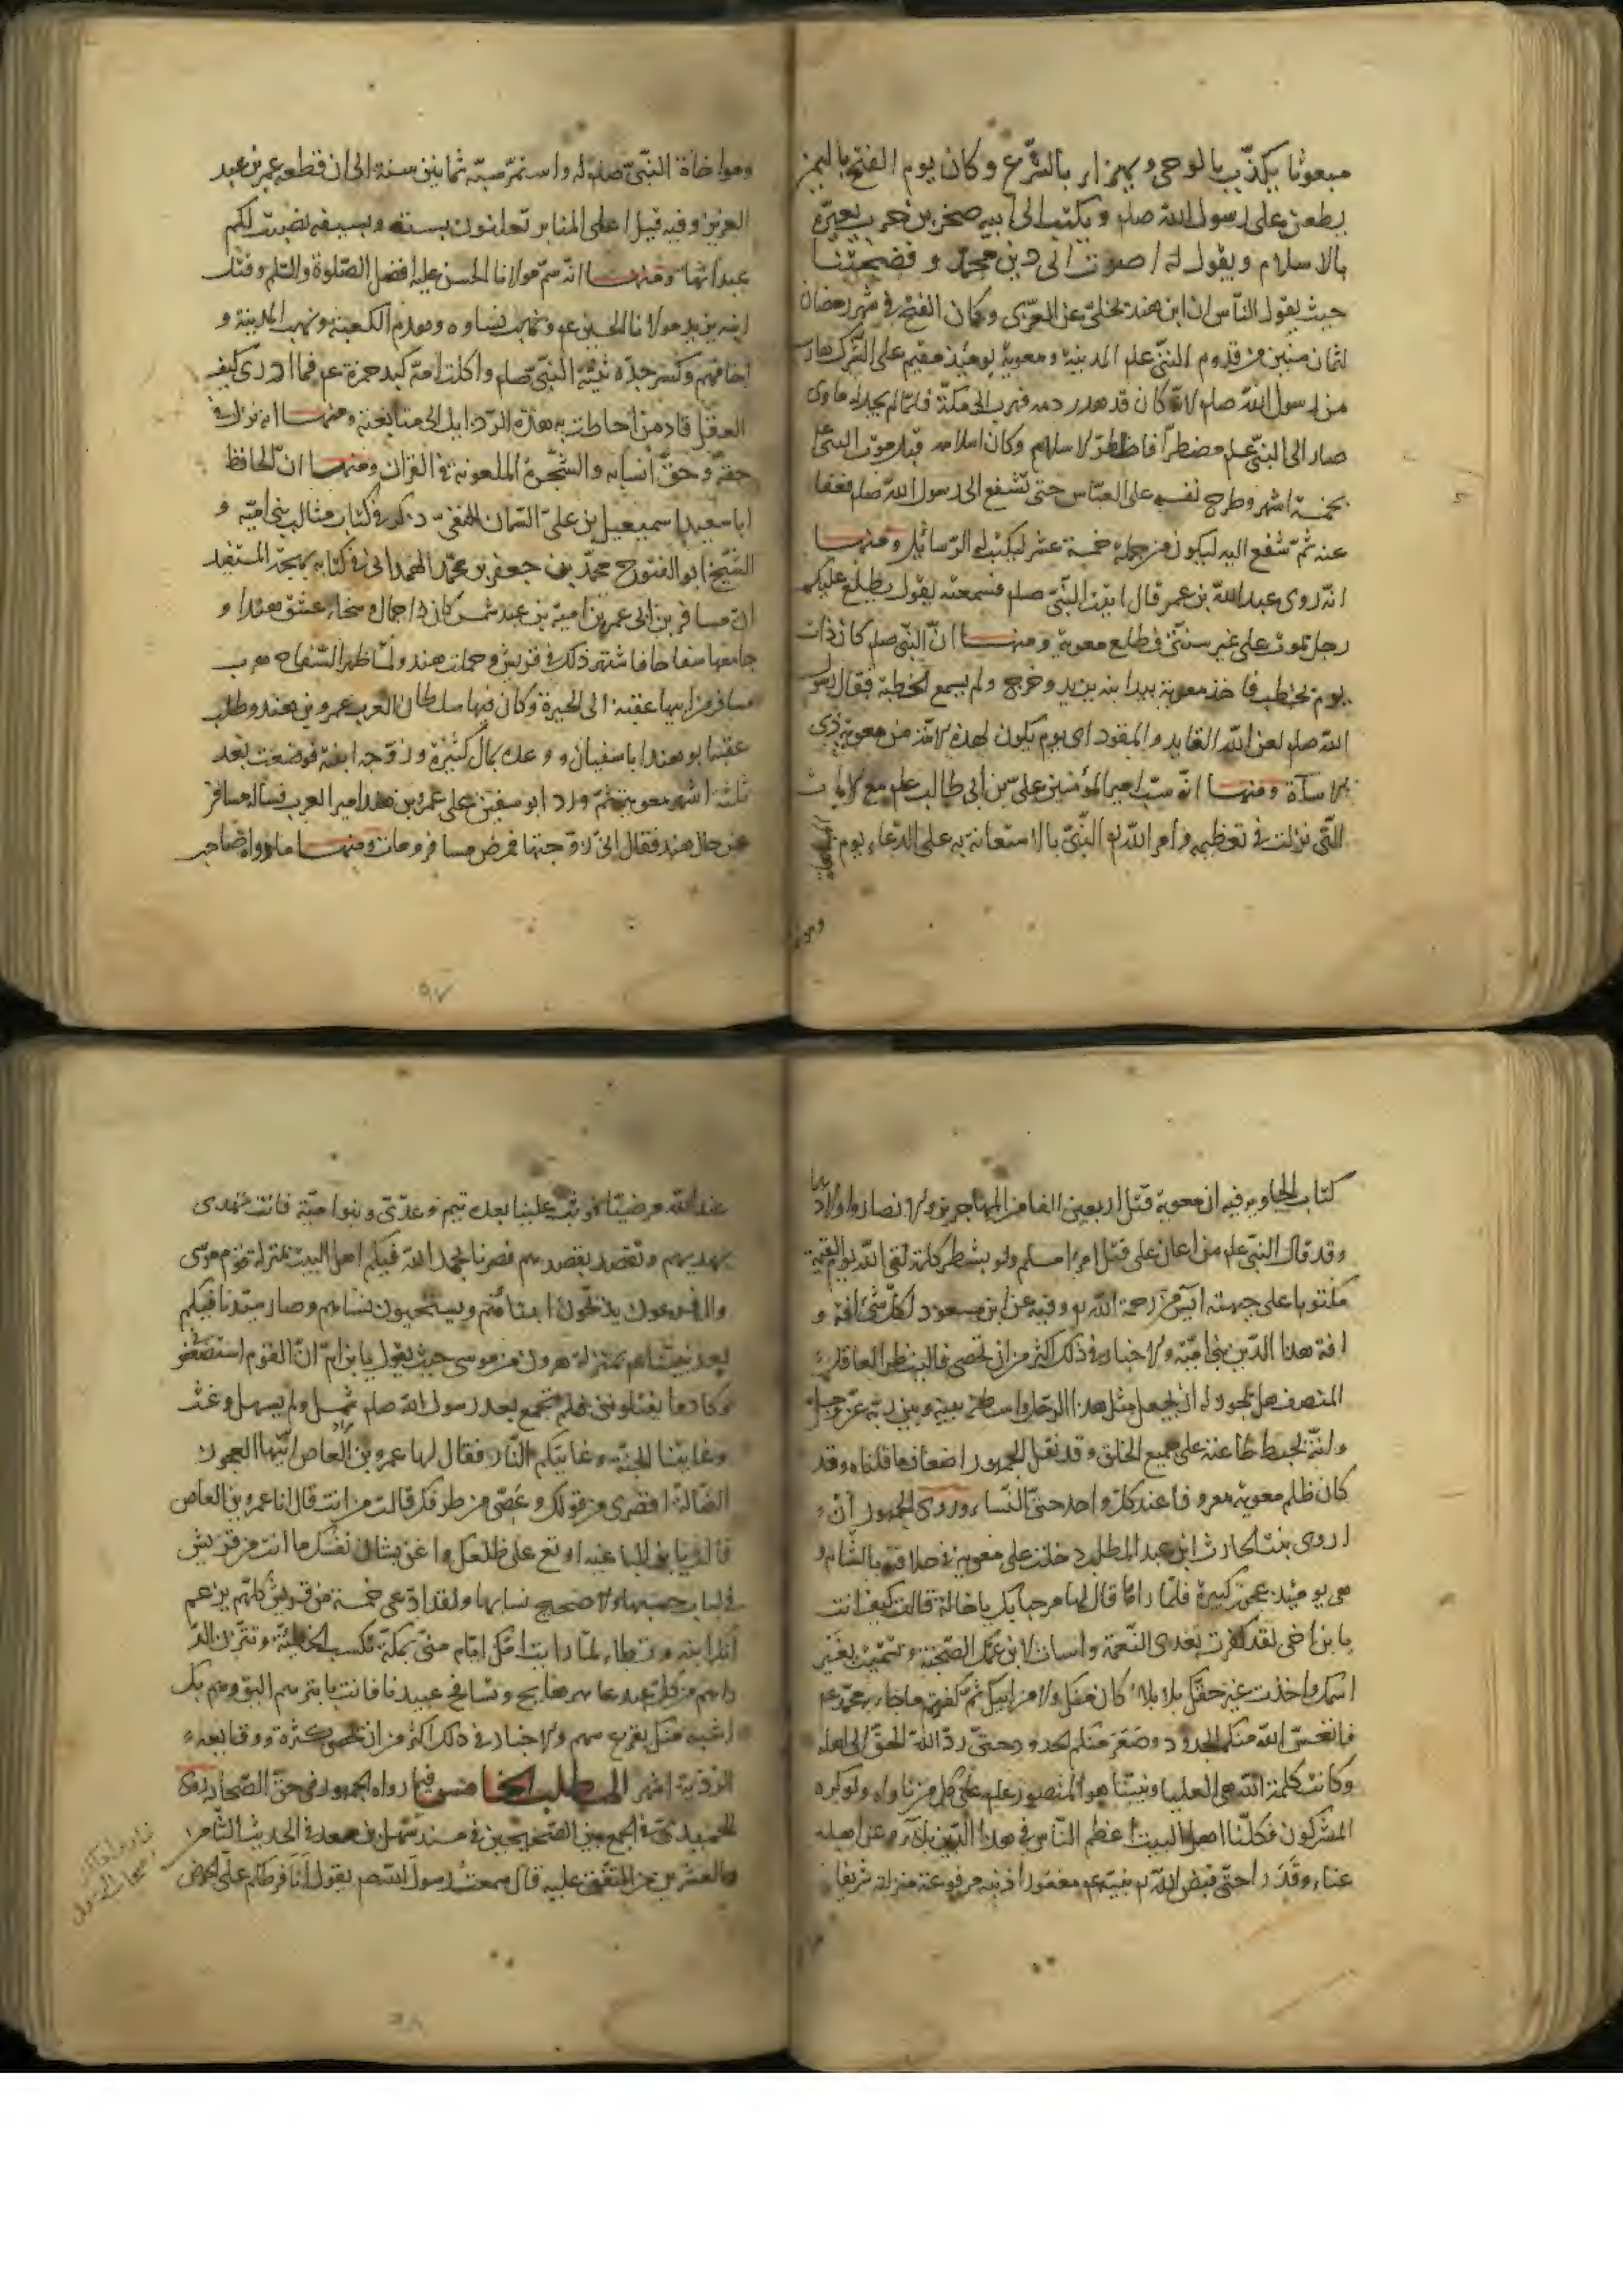 مبعوثا يكذّب بالوحي ويهزا به بالشّرع وكان يوم الفتح باليمن
يطعن على رسول الله صلم ويكتب الى ابيه صخر بن حرب يعيّره
بالاسلام ويقول له اصبوت الى دين محمّد وفضحتنا
حيث يقول النّاس ان ابن هند تخلّى عن العزّى وكان الفتح في شهر رمضان
لثمان سنين من قدوم النبيّ علم المدينة ومعوية يومئذ مقيم على الشّرك هارب
من رسول الله صلم لانّه كان قد هدر دمه فهرب الى مكّة فلمّا لم يجد له ماوى
صار الى النبيّ علم مضطرّا فاظهر الاسلام وكان اسلامه قبل موت النبيّ علم
بخمسة اشهر وطرح نفسه على العبّاس حتى تشفع الى رسول الله صلم فعفا
عنه ثمّ شفع اليه ليكون من جملة خمسة عشر ليكتب له الرّسائل ومنها
انّه روى عبد الله بن عمر قال اتيت النّبيّ صلم فسمعته يقول يطلع عليكم
رجل يموت على غير سنّتي فطلع معوية ومنها انّ النّبيّ صلم كان ذات
يوم يخطب فاخذ معوية بيد ابنه يزيد وخرج ولم يسمع الخطبة فقال رسول
الله صلم لعن الله القايد والمقود اى يوم يكون لهذه الامّة من معوية ذى
الاساءة ومنها انّه سبّ امير المؤمنين على بن أبي طالب علم مع الايات
التّي نزلت في تعظيمه وامر الله لم النّبيّ بالاستعانة به على الدّعاء يوم المباهلة
ومواخاة النّبيّ صلم له واستمرّ سبّه ثمانين سنة الى ان قطعه عمر بن عبد
العزيز وفيه قيل اعلى المنابر تعلنون بسبّه وبسيفه نصبت لكم
عيدانها ومنها انّه سمّ مولانا الحسن عليه افضل الصّلوة والسّلم وقتل
ابنه يزيد مولانا الحسين عم ونهب نساوه وهدم الكعبة ونهب المدينة و
اخافهم وكسر جدّه ثنيّة النّبيّ صلم واكلت امّه كبد حمزة عم فما ادرى كيف
العقل قاد من احاطت به هذه الرّذايل الى متابعته ومنها انّه نزل في
حقّه وحقّ انسابه والشّجرة الملعونة في القران ومنها انّ الحافظ
ابا سعيد اسمعيل بن علىّ السّمان الحنفىّ ذكر في كتاب مثالب بني اميّة و
الشّيخ ابو الفتوح محمّد بن جعفر بن محمّد الهمداني في كتابه بهجة المستفيد
انّ مسافر بن ابي عمر بن امية بن عبد شمس كان ذا جمال وسخاء عشق هندا و
جامعها سفاحا فاشتهر ذلك في قريش وحملت هند ولمّا ظهر السّفاح هرب
مسافر من ابيها عتبة الى الحيرة وكان فيها سلطان العرب عمرو بن هند وطلب
عتبة ابو هند ابا سفيان ووعده بمال كثيره وزوّجه ابنته فوضعت بعد
ثلثة اشهر معوية ثمّ ورد ابو سفين على عمرو بن هند امير العرب فسأله مسافر
عن حال هند فقال انّي تزوّجتها فمرض مسافر ومات ومنها ما رواه صاحب
كتاب الهاوية فيه ان معوية قتل اربعين الفا من المهاجرين والانصار واولادهم
وقد قال النبيّ علم من اعان على قتل امرء مسلم ولو بشطر كلمة لقى الله يوم القيمة
مكتوبا على جبهته آيس من رحمة الله وفيه عن ابن مسعود لكلّ شئ افة و
افة هذا الدّين بني اميّة والاخبار في ذلك اكثر من ان تحصى فالينظر العاقل
المنصف هل يجوز له ان يجعل مثل هذا الرّجل واسطة بينه وبين ربّه عزّ وجلّ
وانّه يجب طاعته على جميع الخلق وقد نقل الجمهور اضعاف ما قلناه وقد
كان ظلم معوية معروفا عند كلّ واحد حتى النّساء وروى الجمهور انّ
اروى بنت الحارث ابن عبد المطلب دخلت على معوية في خلافته بالشّام و
هى يومئذ عجوز كبيرة فلمّا راها قال لها مرحبا بك يا خالة قالت كيف انت
يا بن اخى لقد كفرت بعدى النّعمة واسات لابن عمّك الصّحبة وتسمّيت بغير
اسمك واخذت غير حقّك بلا بلاء كان منك ولا من ابيك ثمّ كفرتم بما جاء به محمّد عم
فاتعس الله منكم الجدود وصعر منكم الخدود حتىّ ردّ الله الحقّ الى اهله
وكانت كلمة الله هى العليا ونبيّنا هو المنصور علم على كلّ من ناواه ولو كره
المشركون فكنّا اهل البيت اعظم النّاس في هذا الدّين بلاء وعن اهله
عناء وقدرا حتّى قبض الله نبيّه عم مغفورا ذنبه مرفوعة منزلته شريفا
عند الله مرضيّا فوثب علينا بعده تيم وعدّى وبنوا اميّة فانت تهتدى
بهديهم وتقصد بقصدهم فصرنا بحمد الله فيكم اهل البيت بمنزلة قوم موسى
وال فرعون يذبّحون ابناءهم ويستحيون نساءهم وصار سيّدنا فيكم
بعد نبيّنا عم بمنزلة هرون من موسى حيث يقول يا بن امّ انّ القوم استضعفوني
وكادوا يقتلوننى فلم تجمع بعد رسول الله صلم شمل ولم يسهل وعث
وغايتنا الجنّة وغايتكم النّار فقال لها عمرو بن العاص ايّتها العجوز
الضّالة اقصرى من قولك وغضّى من طرفك قالت من انت قال انا عمرو بن العاص
قالت يا بن النابغة اربع على ظلعك واعن بشان نفسك ما انت من قريش
في لباب حسبها ولا صحيح نسبها ولقد ادّعى خمسة من قريش كلّهم يزعم
انّك ابنه ولطال ما رايت امّك ايّام منى بمكّة تكسب الخطيئة وتتّزن الدّ
راهم من كلّ عبد عاهر هايج وتسافح عبيدنا فانت بهم اليق وهم بك
اشبه منك بقرع سهم والاخبار في ذلك اكثر من ان تحصى كثرة ووقايعه
الرّديّة اشهر المطلب الخامس فيما رواه الجمهور في حقّ الصّحابة روى
الحميدىّ في الجمع بين الصّحيحين في مسند سهل بن سعد في الحديث الثّامن
والعشرين من المتّفق عليه قال سمعت رسول الله صم يقول انا فرطكم على الحوض